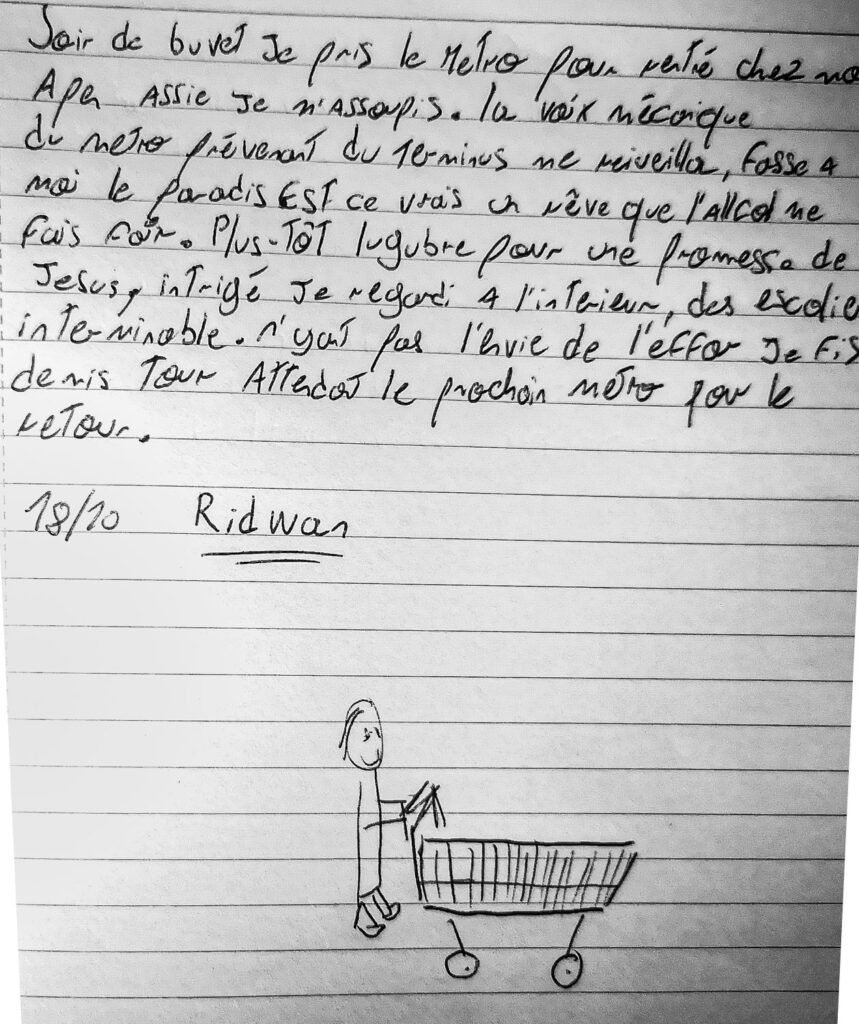 Soir de buvet Je pris le Metro pour rentré chez mo
A pen Assie Je m'Assoupis. la voix mécanique
du metro prévenant du Terminus me reiveilla, fasse a
moi le paradis EST ce vrais un rêve que l'allcol me
fais foir. Plus-Tôt lugubre pour une promesse de
Jesus, intrigé Je regardi a l'interieur, des escolie
interminable. n'yant pas l'envie de l'effor Je fis
demis Tour Attendat le prochain metro pour le
reTour.
18/10 Ridwan